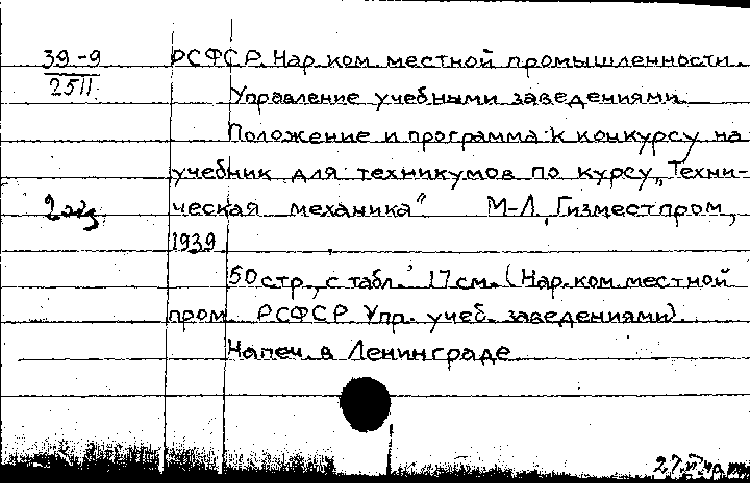 39-9
2511
РСФСР. Нар. ком. местной промышленности.
Управление учебными заведениями.
Положение и программа к конкурсу на
учебник для техникумов по курсу „Техни-
2 экз.
ческая механика" М-Л, Гизместпром,
1939.
50 стр., с табл. 17 см. (Нар. ком. местной
пром. РСФСР. Упр. учеб. заведениями).
Напеч. в Ленинграде.